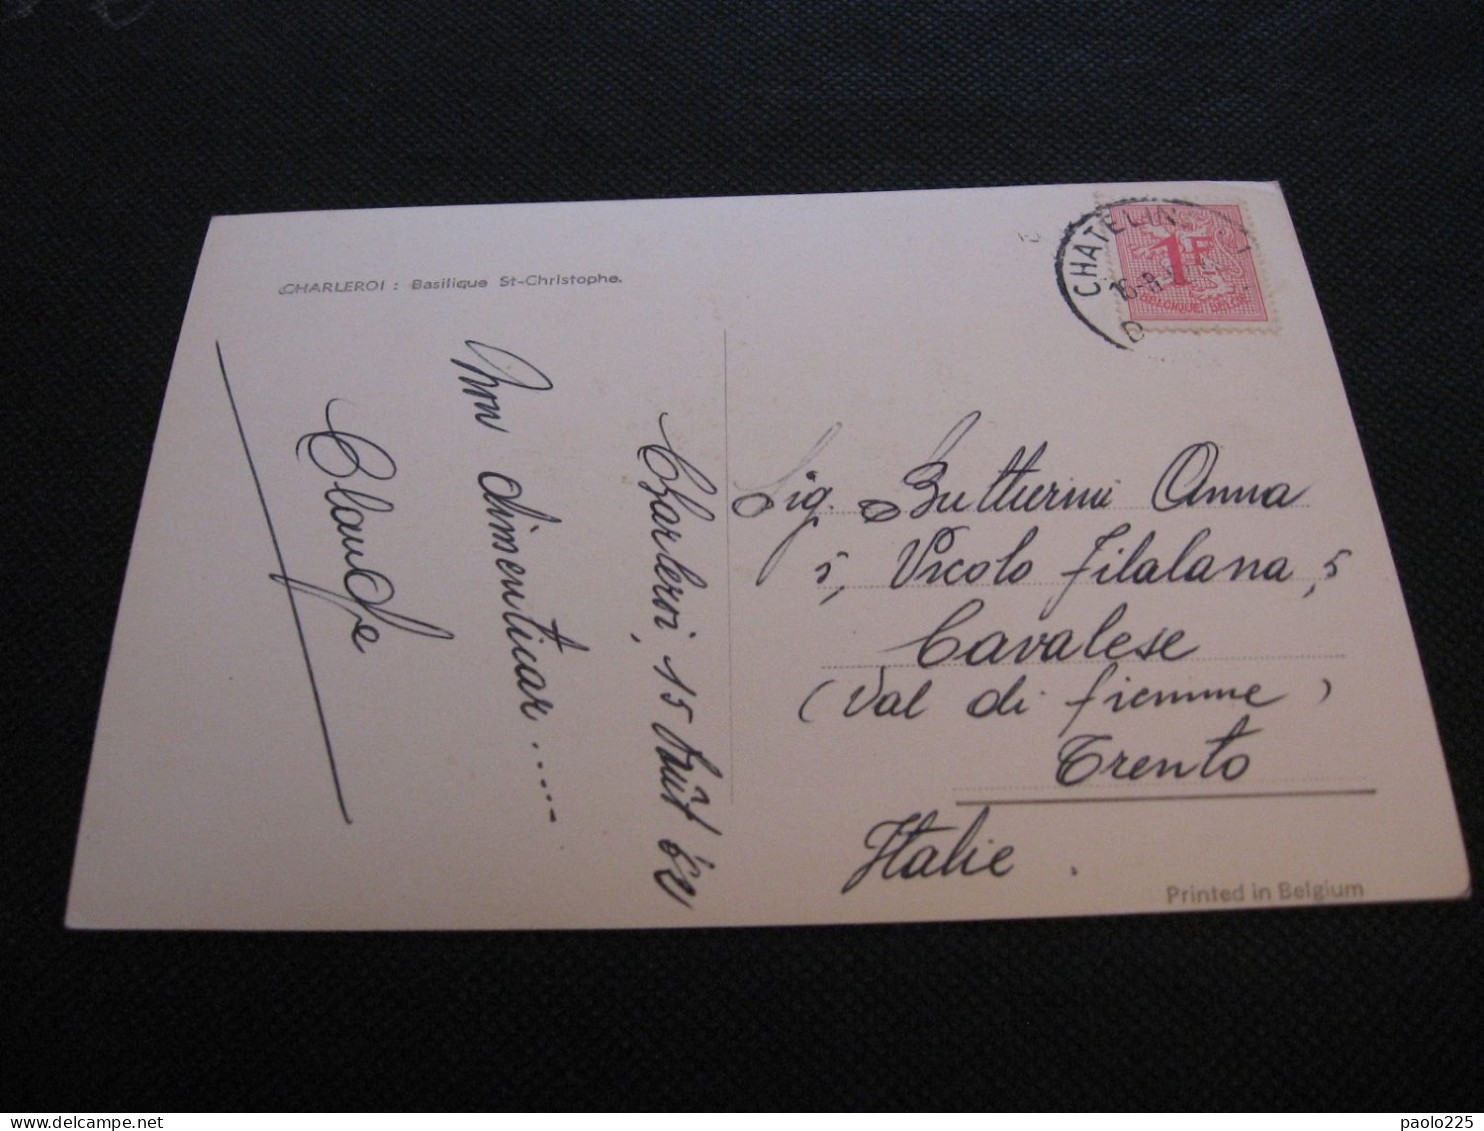 CHARLEROI : Basilique St-Christophe.
Charleroi, 15 Août
Non dimenticar......
Claude
CHATELIN
16-8
D
1F
BELGIQUE BELGIE
Sig. Butturini Anna
5, Vicolo Filalana, 5
Cavalese
(Val di fiemme)
Trento
Italie.
Printed in Belgium
paolo225